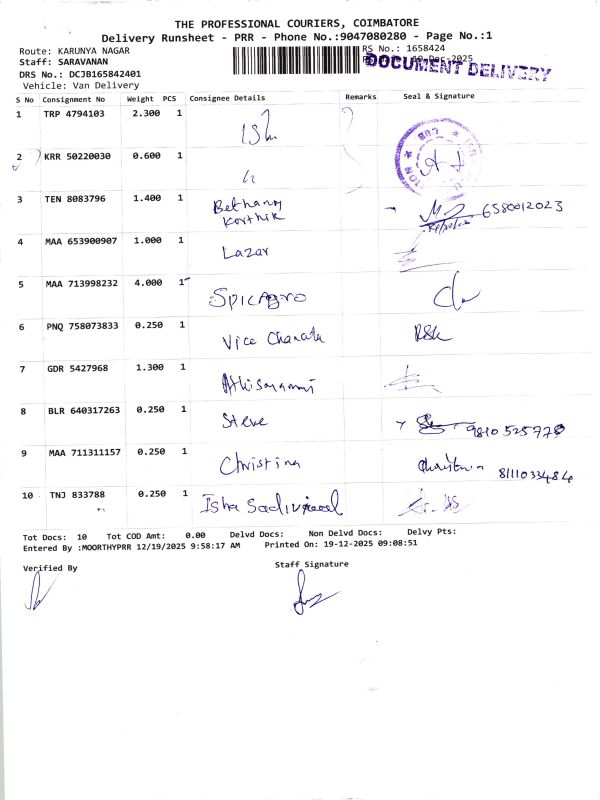 THE PROFESSIONAL COURIERS, COIMBATORE
Delivery Runsheet - PRR - Phone No.:9047080280 - Page No.:1
Route: KARUNYA NAGAR
RS No.: 1658424
Staff: SARAVANAN
19-Dec-2025
DOCUMENT DELIVERY
DRS No.: DCJB165842401
Vehicle: Van Delivery
S No Consignment No Weight PCS Consignee Details Remarks Seal & Signature
1 TRP 4794103 2.300 1
2 KRR 50220030 0.600 1
3 TEN 8083796 1.400 1 Bethany Karthik 6580012023
4 MAA 653900907 1.000 1 Lazar
5 MAA 713998232 4.000 1 Spicagro
6 PNQ 758073833 0.250 1 Vice Chancala RSK
7 GDR 5427968 1.300 1
8 BLR 640317263 0.250 1 Steve
9 MAA 711311157 0.250 1 Christina Christina 8111033484
10 TNJ 833788 0.250 1 Isha
Tot Docs: 10 Tot COD Amt: 0.00 Delvd Docs: Non Delvd Docs: Delvy Pts:
Entered By :MOORTHYPRR 12/19/2025 9:58:17 AM Printed On: 19-12-2025 09:08:51
Verified By
Staff Signature